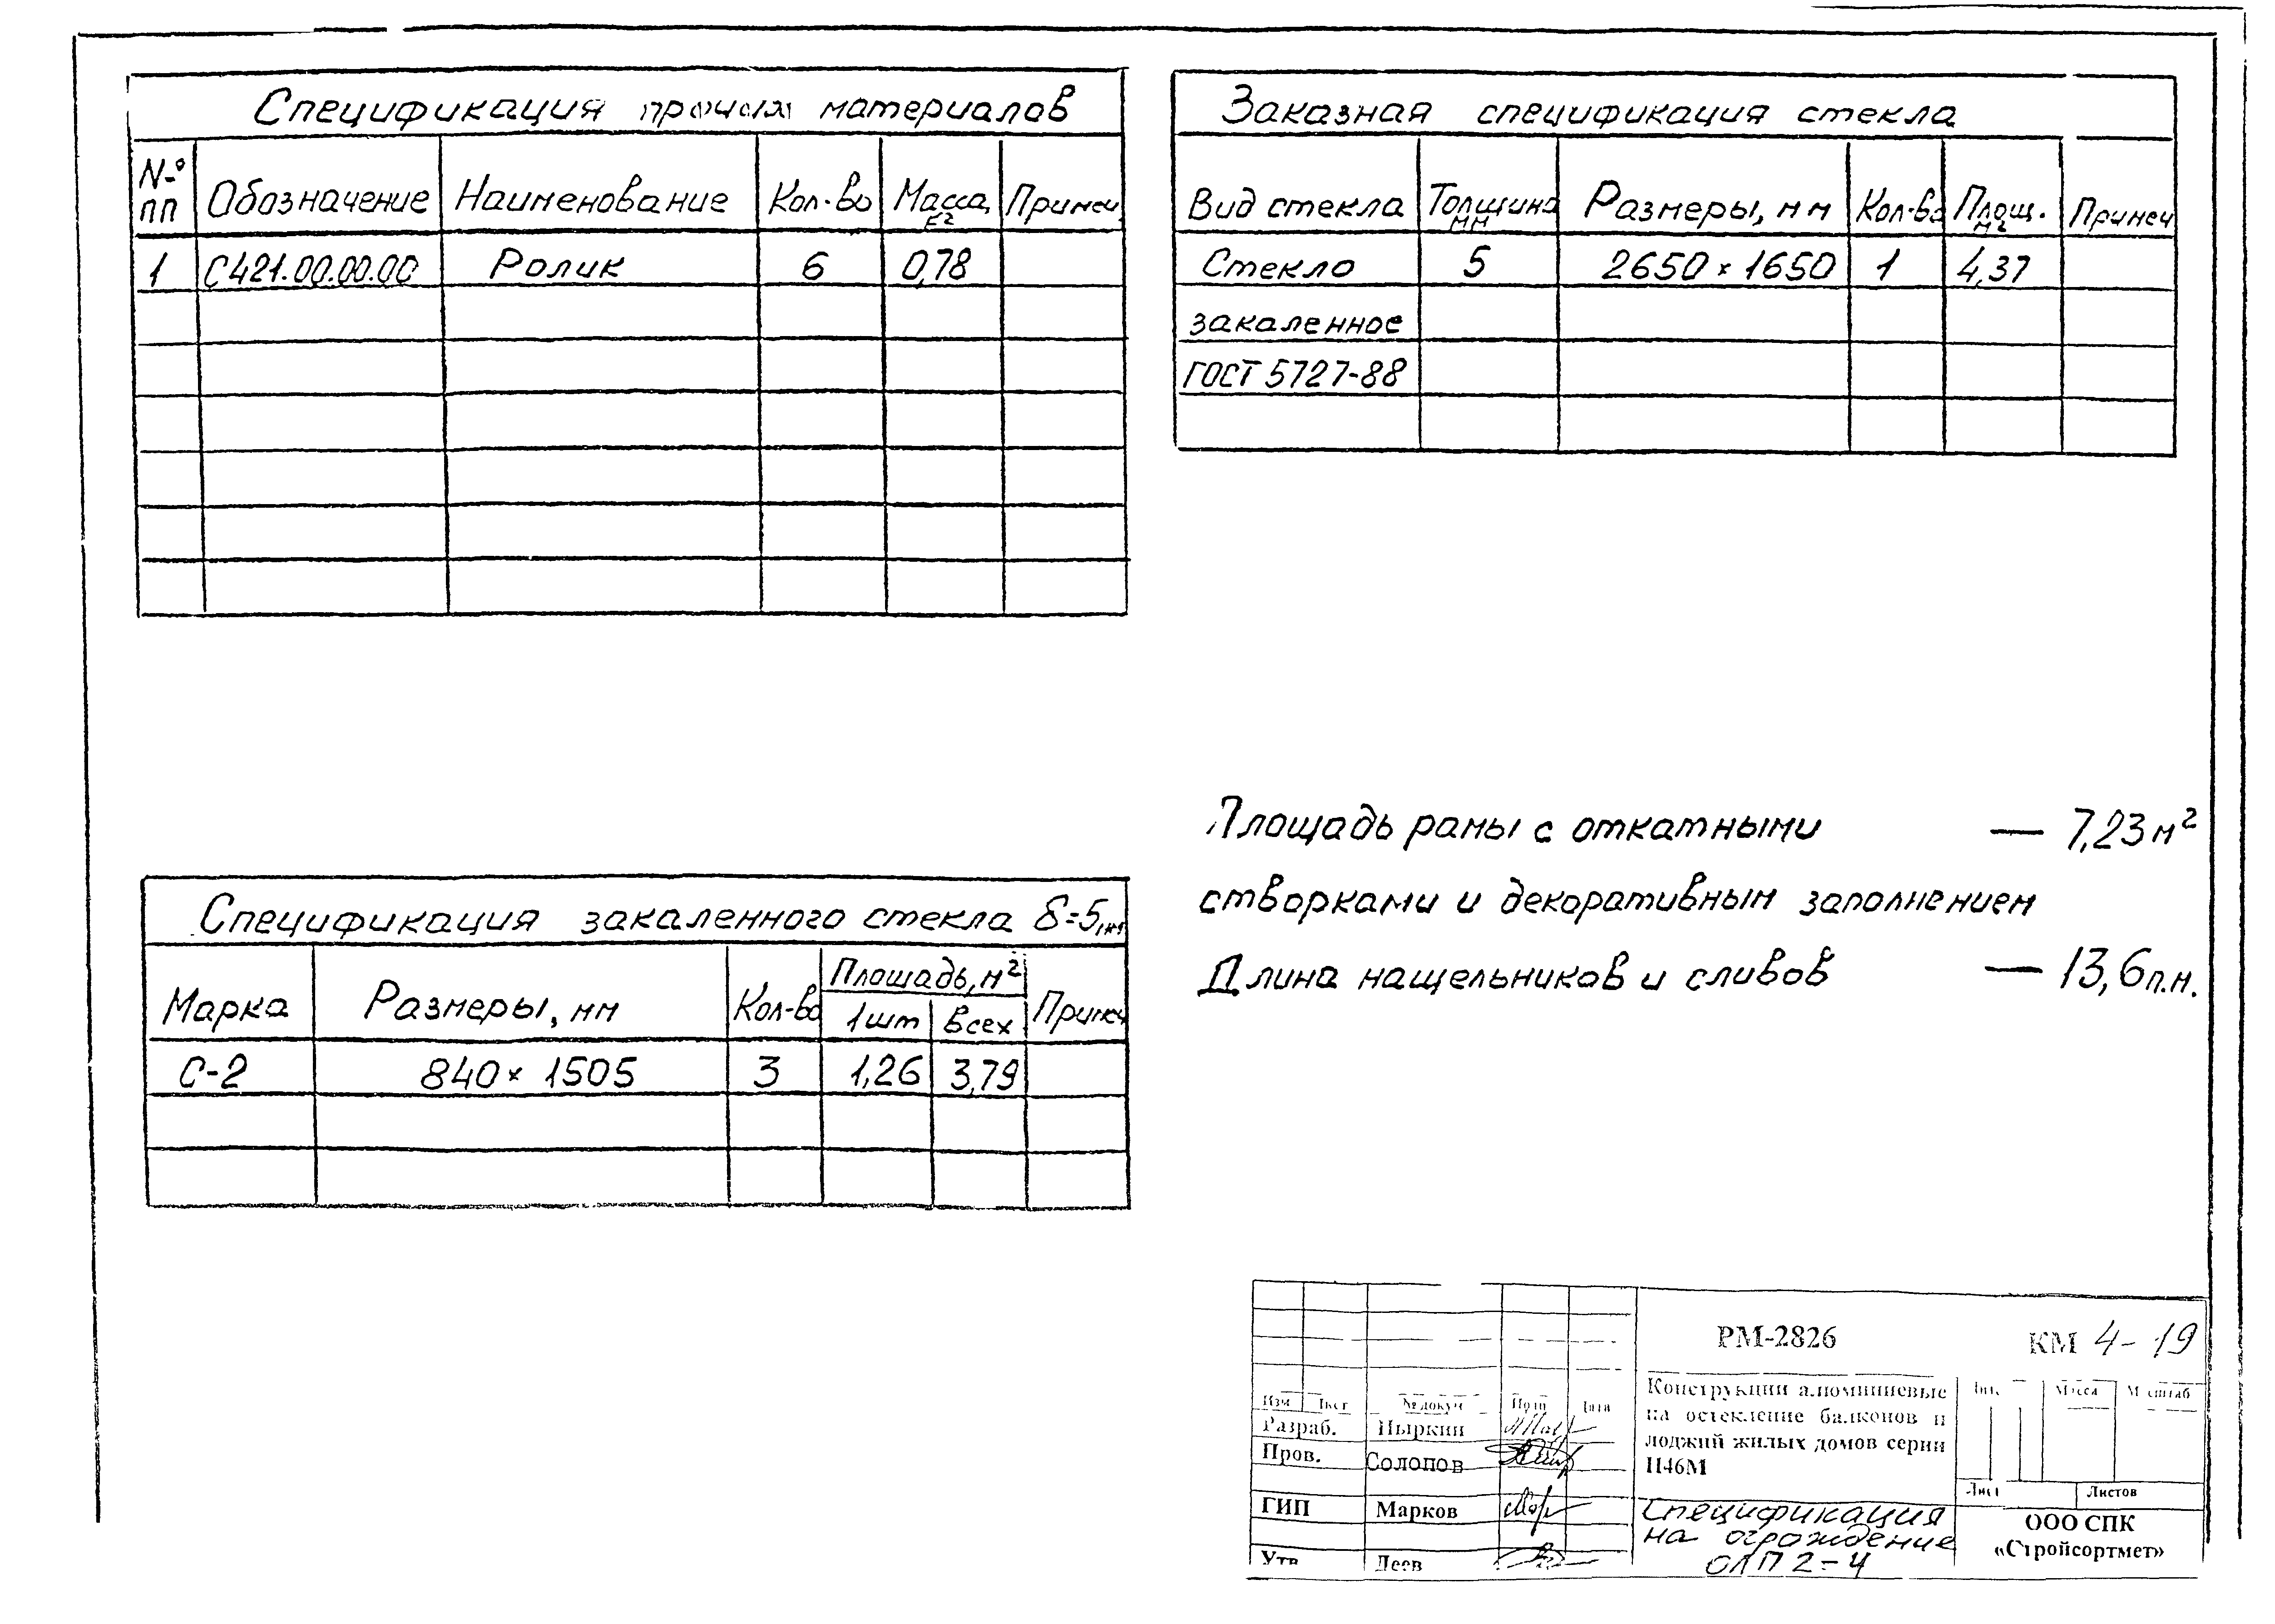 Спецификация прочих материалов
№ пп Обозначение Наименование Кол-во Масса, кг Примеч.
1 С421.00.00.00 Ролик 6 0,78
Заказная спецификация стекла
Вид стекла Толщина мм Размеры, мм Кол-во Площ. м² Примеч
Стекло 5 2650 × 1650 1 4,37
закаленное
ГОСТ 5727-88
Площадь рамы с откатными — 7,23 м²
створками и декоративным заполнением
Длина нащельников и сливов — 13,6 п.м.
Спецификация закаленного стекла δ=5мм
Марка Размеры, мм Кол-во Площадь, м² Примеч
1шт Всех
С-2 840 × 1505 3 1,26 3,79
РМ-2826 КМ 4-19
Изм Лист № докум Подп Дата
Разраб. Ныркин
Пров. Солопов
ГИП Марков
Утв Деев
Конструкции алюминиевые
на остекление балконов и
лоджий жилых домов серии
П46М
Лит. Масса Масштаб
Лист Листов
Спецификация
на ограждение
ОЛП 2-4
ООО СПК
«Стройсортмет»